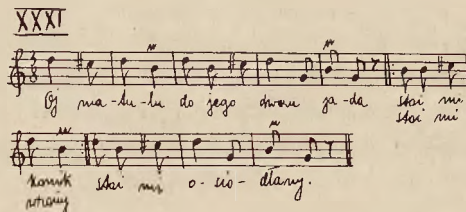 XXXI
3
8
Oj ma-tu-lu do jego dworu ja-da stoi mi
stoi mi
konik stoi mi o-sio-dłany.
wrony